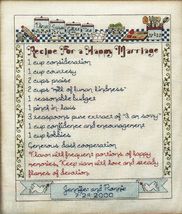 Recipe For a Happy Marriage
1 cup consideration
1 cup courtesy
2 cups praise
2 cups "milk of human kindness"
1 reasonable budget
1 pinch in laws
3 teaspoons pure extract of "I am sorry"
1 cup confidence and encouragement
1 cup hobbies
Generous dash cooperation
"Flavor with frequent portions of happy
memories. Keep warm with love and steady
flames of devotion.
Jennifer and Ronnie
7-29-2000